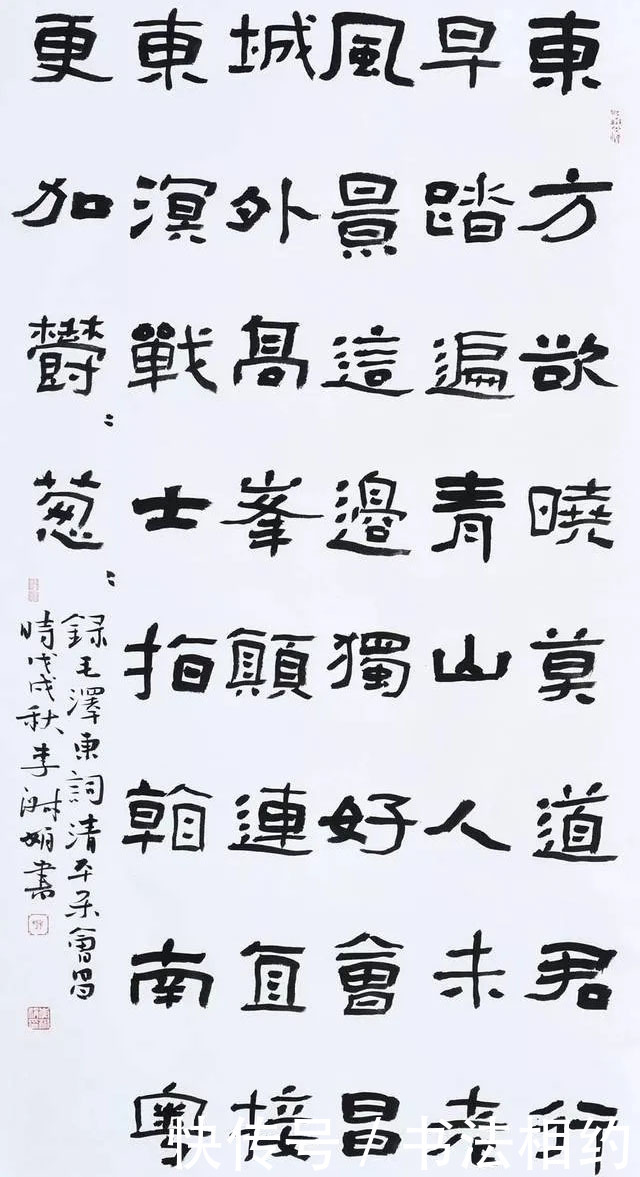 東方欲曉莫道君行
早踏遍青山人未老
風景這邊獨好會昌
城外高峯顛連直接
東溟戰士指看南粵
更加鬱：蔥：
録毛澤東詞清平樂會昌
時戊戌秋李書
快传号 / 书法相约